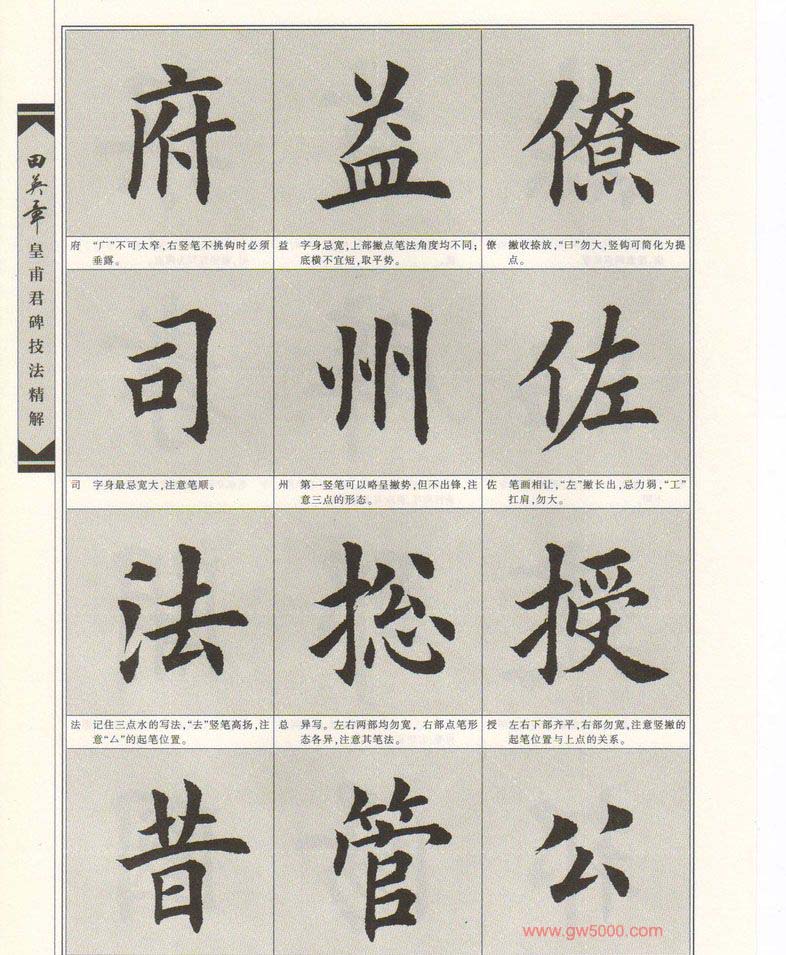 田英章
皇甫君碑技法精解
府 益 僚
府 “广”不可太窄,右竖笔不挑钩时必须
垂露。
益 字身忌宽,上部撇点笔法角度均不同;
底横不宜短,取平势。
僚 撇收捺放,“日”勿大,竖钩可简化为提
点。
司 州 佐
司 字身最忌宽大,注意笔顺。
州 第一竖笔可以略呈撇势,但不出锋,注
意三点的形态。
佐 笔画相让,“左”撇长出,忌力弱,“工”
扛肩,勿大。
法 揔 授
法 记住三点水的写法,“去”竖笔高扬,注
意“厶”的起笔位置。
总 异写。左右两部均勿宽,右部点笔形
态各异,注意其笔法。
授 左右下部齐平,右部勿宽,注意竖撇的
起笔位置与上点的关系。
昔 管 公
www.gw5000.com